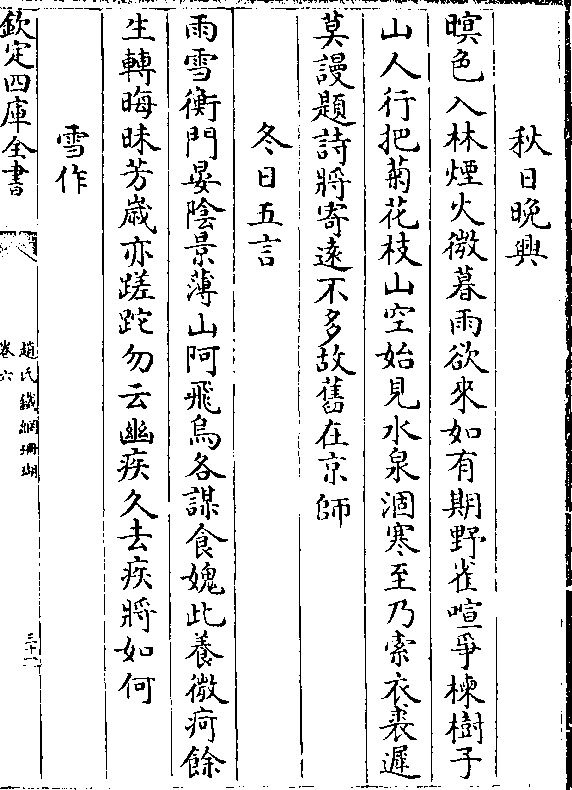 秋日晚興
暝色入林煙火微暮雨欲來如有期野雀喧爭楝樹子
山人行把菊花枝山空始見水泉涸寒至乃索衣裘遲
莫謾題詩將寄遠不多故舊在京師
冬日五言
雨雪衡門晏陰景薄山阿飛鳥各謀食媿此養微痾餘
生轉晦昧芳歲亦蹉跎勿云幽疾久去疾將如何
雪作
欽定四庫全書
趙氏鐵網珊瑚
卷六
三十一